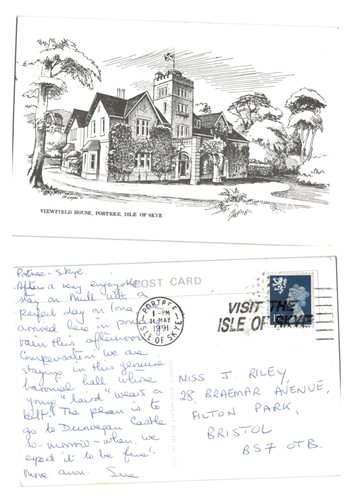 VIEWFIELD HOUSE, PORTREE, ISLE OF SKYE
Portree - Skye.
POST CARD
After a very enjoyable
stay on Mull with a
perfect day on Iona
arrived here in pouring
rain this afternoon.
Compensation we are
staying in this genuine
baronial hall where
young "laird" wears a
kilt! The plan is to
go to Dunvegan Castle
to-morrow - when we
expect it to be fine!
More anon. Sue
PORTREE
1 - PM
11 MAY
1991
ISLE OF SKYE
VISIT THE
ISLE OF SKYE
MISS J RILEY,
28 BRAEMAR AVENUE,
FILTON PARK,
BRISTOL
BS7 0TB.